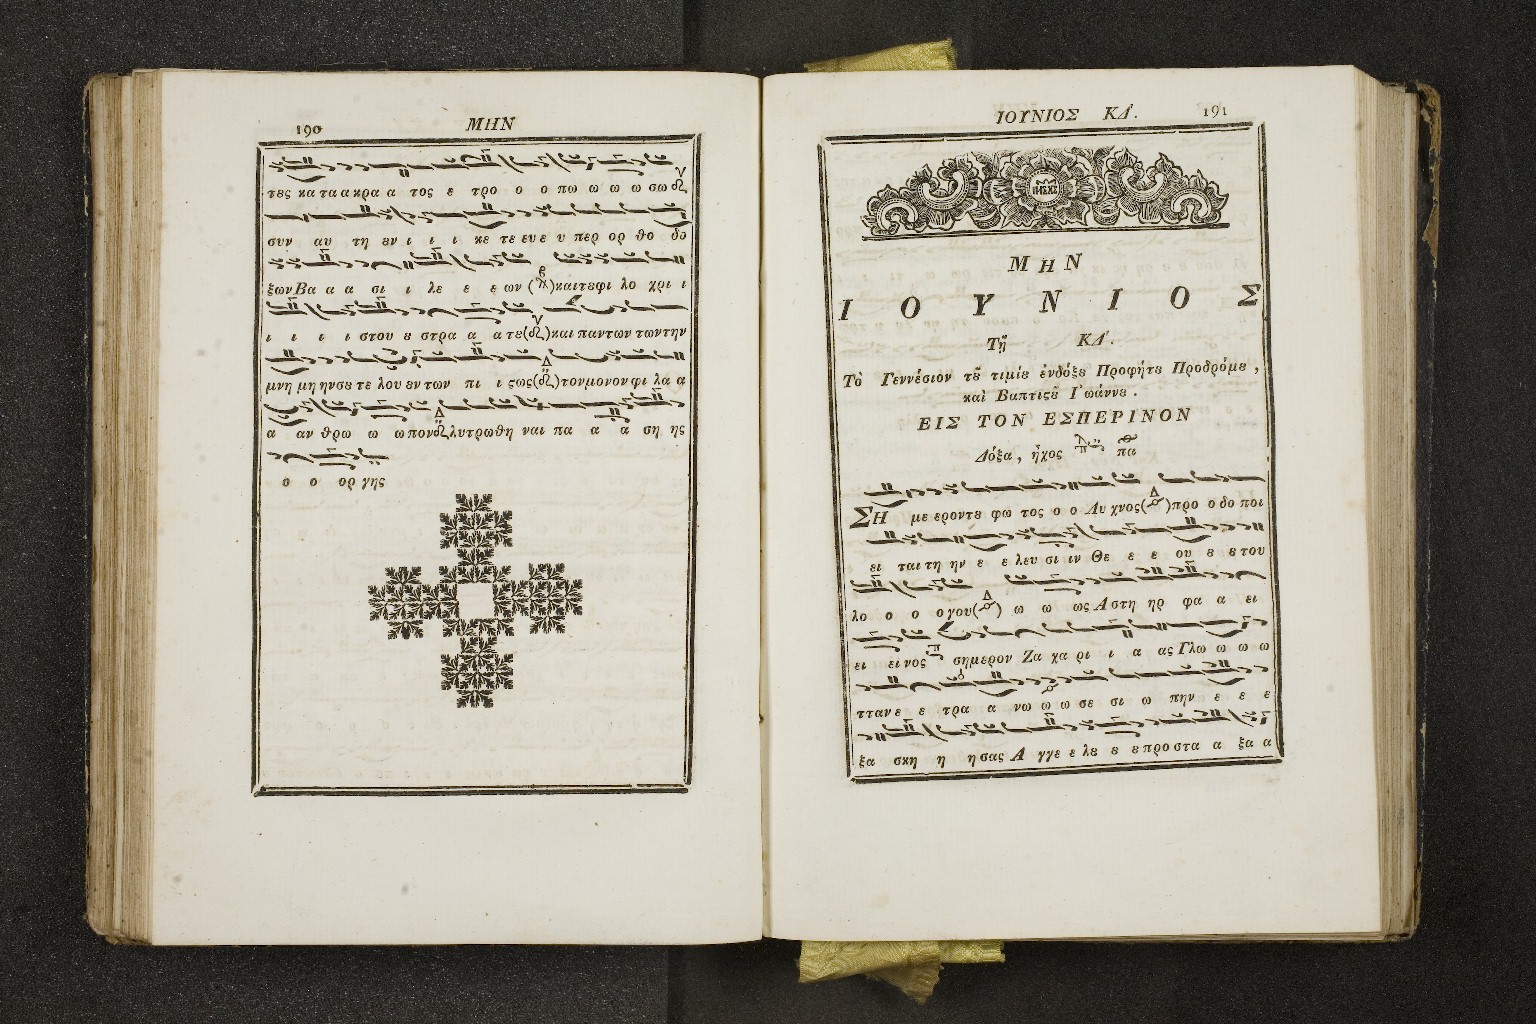 190 ΜΗΝ
τες κα τα α κρα α τος ε τρο ο ο πω ω ω ω σω
συν αυ τη ȣν ι ι ι κε τε ευ ε υ περ ορ θο δο
ξων Βα α α σι ι λε ε ε ων ( ) και τȣ φι λο χρι ι
ι ι ι ι στου ȣ στρα α α τȣ ( ) και παντων των την
μνη μη ην σȣ τε λου ȣν των πι ι ϛως ( ) τον μονον φι λα α
α αν θρω ω ω πον λυτρωθη ναι πα α α ση ης
ο ο ορ γης
ἸΟΥΝΙΟΣ ΚΔ'. 191
ΜΗΝ
ΙΟΥΝΙΟΣ
Τῇ ΚΔ'.
Τὸ Γεννέσιον τȣ͂ τιμίȣ ἐνδόξȣ Προφήτȣ Προδρόμȣ,
καὶ Βαπτιϛȣ͂ Ἰωάννȣ.
ΕΙΣ ΤΟΝ ΕΣΠΕΡΙΝΟΝ
Δόξα, ἦχος πα
ΣΗ με ερον τȣ φω τος ο ο Λυ χνος ( ) προ ο δο ποι
ει ται τη ην ε ε λευ σι ιν Θε ε ε ου ȣ ȣ του
λο ο ο ο γου ( ) ω ω ως Α στη ηρ φα α ει
ει ει νος σημερον Ζα χα ρι ι α ας Γλω ω ω ω
τταν ε ε τρα α νω ω ω σε σι ω πην ε ε ε
ξα σκη η η σας Α γγε ε λȣ ȣ ȣ προ στα α ξα α